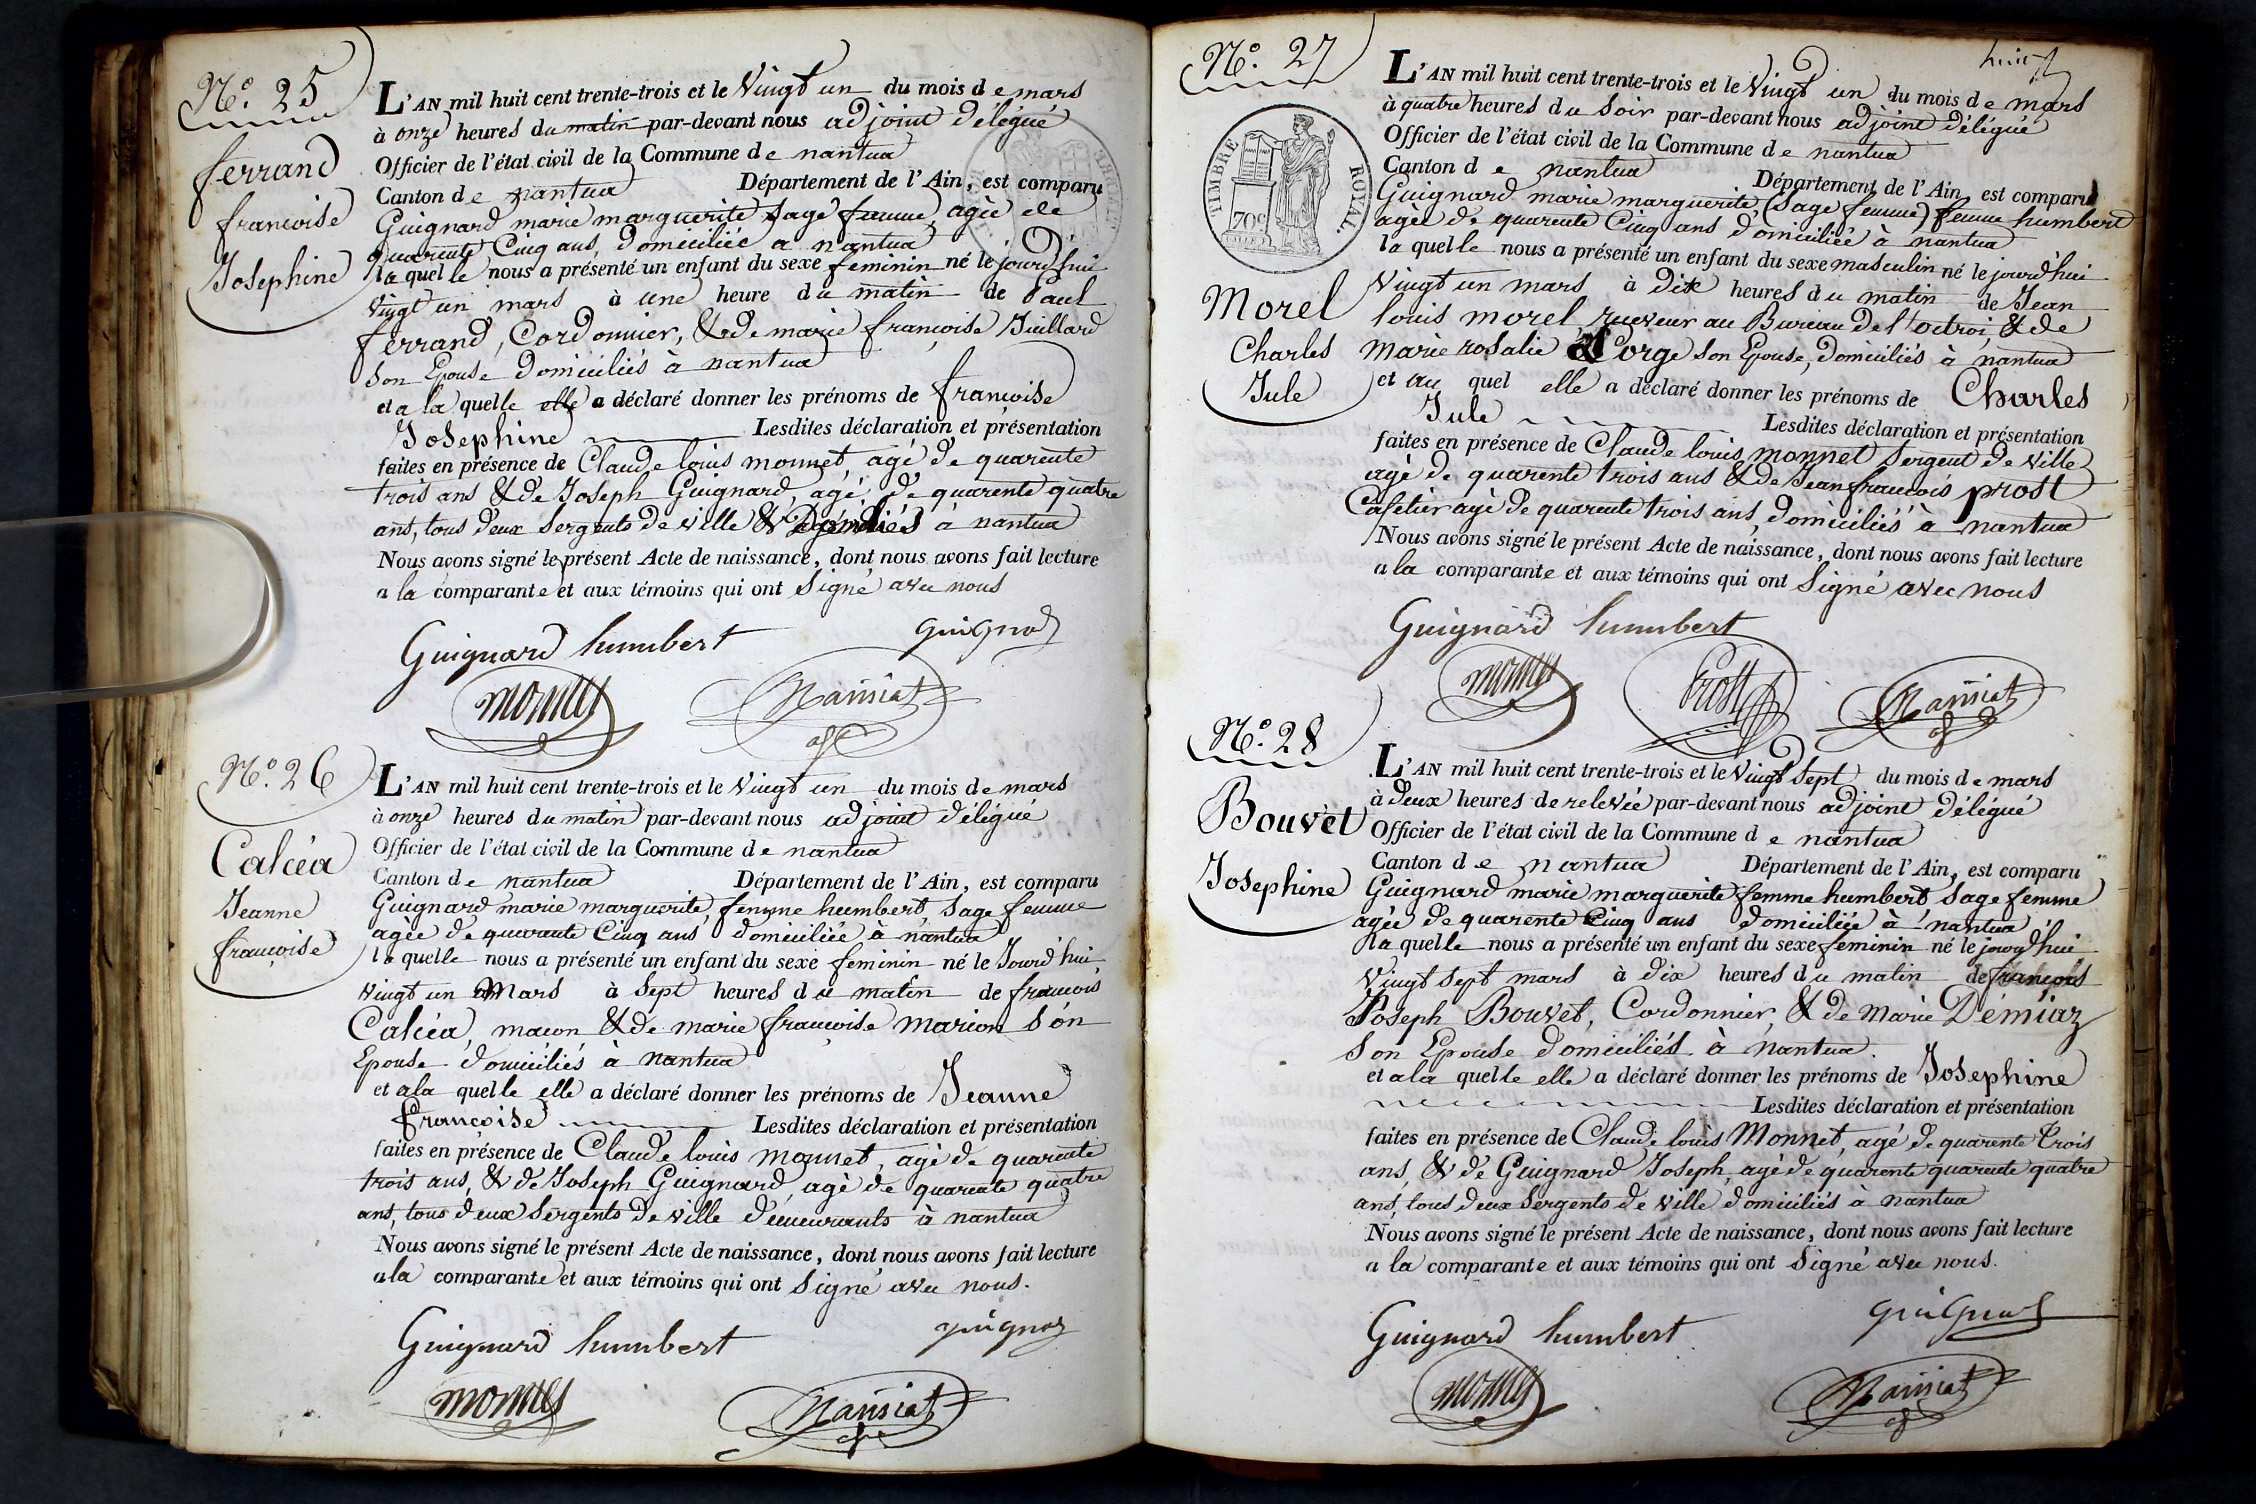 N.° 25
ferrand
francoise
Josephine
L'AN mil huit cent trente-trois et le Vingt un du mois de mars
à onze heures du matin par-devant nous adjoint délégué
Officier de l'état civil de la Commune de nantua
Canton de nantua Département de l'Ain, est comparu
Guignard marie marguerite sage femme, agèe de
quarente Cinq ans, domiciliée a nantua
la quelle nous a présenté un enfant du sexe feminin né le jourd'hui
vingt un mars à une heure du matin de Paul
ferrand, Cordonnier, & de marie françoise Juillard
son Epouse domiciliés à nantua
et a la quelle elle a déclaré donner les prénoms de françoise
Josephine Lesdites déclaration et présentation
faites en présence de Claude louis monnet, agé de quarente
trois ans & de Joseph Guignard, agé de quarente quatre
ans, tous deux Sergents de ville & à nantua
Nous avons signé le présent Acte de naissance, dont nous avons fait lecture
a la comparante et aux témoins qui ont Signé avec nous
Guignard humbert
monnet
N.° 26
Calcéa
Jeanne
françoise
L'AN mil huit cent trente-trois et le Vingt un du mois de mars
à onze heures du matin par-devant nous adjoint délégué
Officier de l'état civil de la Commune de nantua
Canton de nantua Département de l'Ain, est comparu
Guignard marie marguerite, femme humbert, Sage femme
agèe de quarante Cinq ans domiciliée à nantua
la quelle nous a présenté un enfant du sexe feminin né le Jourd'hui
vingt un Mars à Sept heures du matin de francois
Calcéa, macon & de marie françoise Marion son
Epouse domiciliés à nantua
et a la quelle elle a déclaré donner les prénoms de Jeanne
françoise Lesdites déclaration et présentation
faites en présence de Claude louis monnet, agé de quarente
trois ans, & de Joseph Guignard, agè de quarente quatre
ans, tous deux Sergents de ville demeurants à nantua
Nous avons signé le présent Acte de naissance, dont nous avons fait lecture
a la comparante et aux témoins qui ont Signé avec nous.
Guignard humbert
monnet
huit
N.° 27
TIMBRE ROYAL.
70c
Morel
Charles
Jule
L'AN mil huit cent trente-trois et le Vingt un du mois de mars
à quatre heures du Soir par-devant nous adjoint délégué
Officier de l'état civil de la Commune de nantua
Canton de nantua Département de l'Ain, est comparu
Guignard marie marguerite, (sage femme) femme humbert
agèe de quarente Cinq ans domiciliée à nantua
la quelle nous a présenté un enfant du sexe masculin né le jourd'hui
Vingt un mars à dix heures du matin de Jean
louis morel receveur au Bureau de l'octroi, & de
Marie rosalie Lorge son Epouse, domiciliés à nantua
et au quel elle a déclaré donner les prénoms de Charles
Jule Lesdites déclaration et présentation
faites en présence de Claude louis monnet Sergent de Ville
agé de quarente trois ans & de Jean francois prost
Cafetier agé de quarente trois ans, domiciliés à nantua
Nous avons signé le présent Acte de naissance, dont nous avons fait lecture
a la comparante et aux témoins qui ont Signé avec nous
Guignard humbert
monnet Prost
N.° 28
Bouvet
Josephine
L'AN mil huit cent trente-trois et le Vingt Sept du mois de mars
à deux heures de relevée par-devant nous adjoint délégué
Officier de l'état civil de la Commune de nantua
Canton de nantua Département de l'Ain, est comparu
Guignard marie marguerite femme humbert sage femme
agée de quarente Cinq ans domiciliée à nantua
la quelle nous a présenté un enfant du sexe feminin né le jourd'hui
Vingt Sept mars à dix heures du matin de françois
Joseph Bouvet, Cordonnier, & de Marie Démiaz
Son Epouse domiciliés à nantua.
et a la quelle elle a déclaré donner les prénoms de Josephine
Lesdites déclaration et présentation
faites en présence de Claude louis Monnet, agé de quarente trois
ans, & de Guignard Joseph, agé de quarente quarente quatre
ans, tous deux Sergents de ville domiciliés à nantua
Nous avons signé le présent Acte de naissance, dont nous avons fait lecture
a la comparante et aux témoins qui ont Signé avec nous.
Guignard humbert
monnet